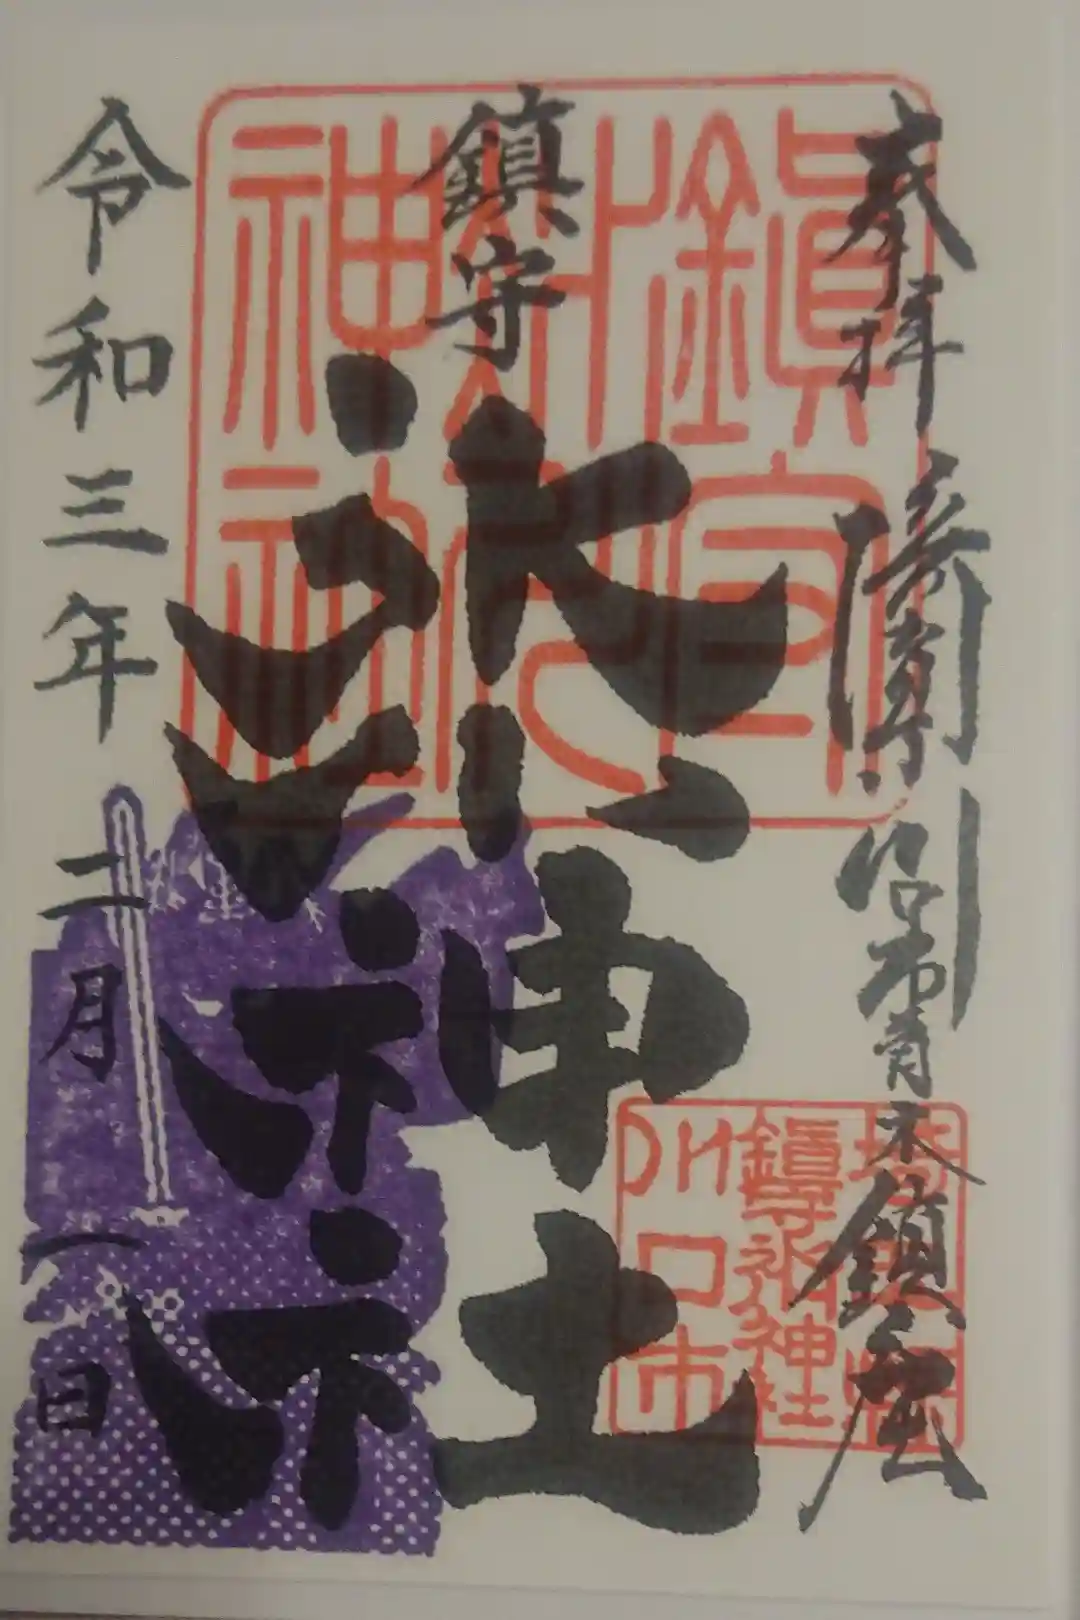 奉拝
川口市青木鎮座
鎮守
氷川神社
令和三年二月一日
鎮守氷川神社
埼玉県
鎮守氷川神社
川口市